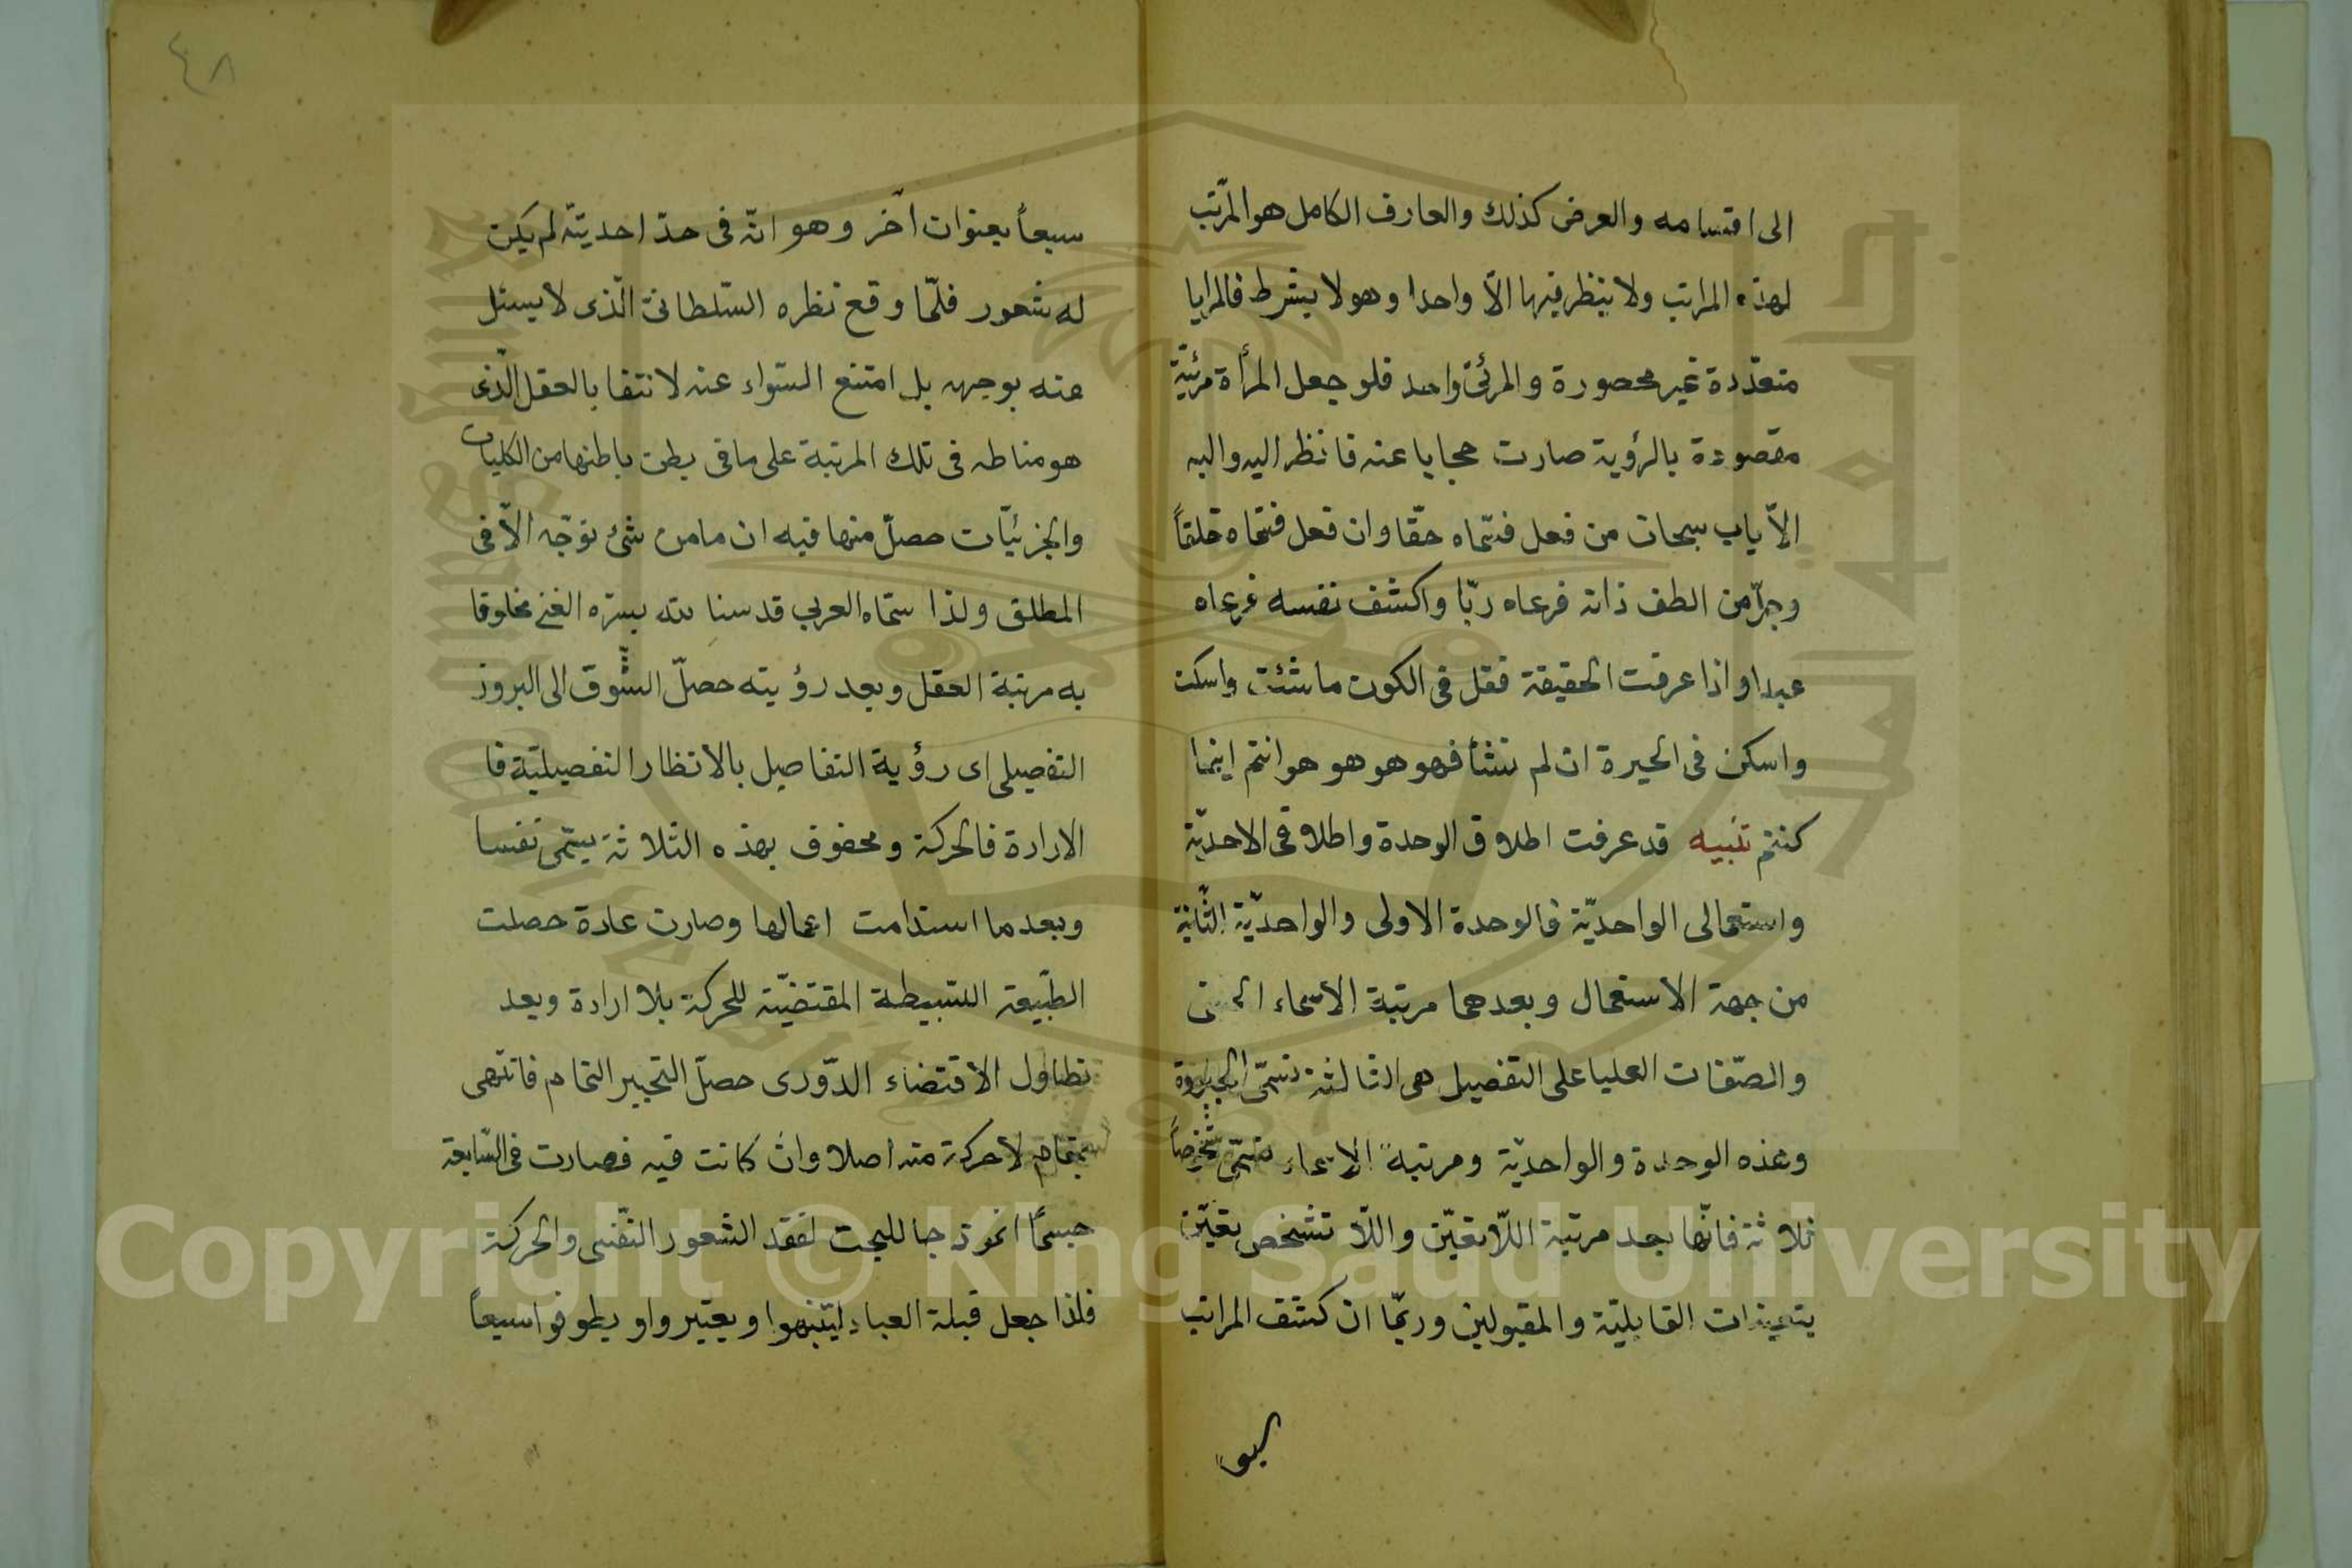 الى اقسامه والعرض كذلك والعارف الكامل هو المرّتب
لهذه المراتب ولا ينظر فيها الاّ واحدا وهو لا بشرط فالمرايا
متعدّدة غير محصورة والمرئىّ واحد فلو جعل المرأة مرئيّة
مقصودة بالرؤية صارت حجابا عنه فانظر اليه واليه
الاّياب سبحان من فعل فسّماه حقّا وان فعل فسّماه خلقاً
وجرّ من الطف ذاته فرعاه ربّا واكشف نفسه فرعاه
عبدا واذا عرفت الحقيقة فقل فى الكون ما شئت واسكت
واسكن فى الحيرة ان لم تشأ فهو هو هو هو انتم اينما
كنتم تنبيه قد عرفت اطلاق الوحدة واطلاقى الاحديّة
واستعمالى الواحديّة فالوحدة الاولى والواحديّة الثّانية
من جهة الاستعمال وبعدهما مرتبة الاسماء الحسنى
والصّفات العليا على التفصيل هى الثالثة تسمّى الجبروة
وهذه الوحدة والواحديّة ومرتبة الاسماء تسمّى
ثلاثة فانّها بعد مرتبة اللّاتعيّن واللّا تشخص بتعيّن
بتعينات القابليّة والمقبولين وربّما ان كشف المراتب
سبعاً بعنوان آخر وهو انّه فى حدّ احديته لم يكن
له شعور فلمّا وقع نظره السّلطانىّ الّذى لا يسئل
عنه بوجهه بل امتنع السّواء عنه لانتفا بالعقل الّذى
هو مناطه فى تلك المرتبة على ما فى بطن باطنها من الكليات
والجزئيّات حصلّ منها فيه ان ما من شئ توّجه الاّ فى
المطلق ولذا سمّاه العربى قدسنا لله بسرّه الغنى مخلوقا
به مرتبة العقل وبعد رؤيته حصلّ الشّوق الى البروز
التفصيلى اى رؤية التفاصيل بالانظار التفصيليّة فا
الارادة فالحركة ومحفوف بهذه الثلاثة يسّمى نفسا
وبعد ما استدامت اعمالها وصارت عادة حصلت
الطّبيعة البسيطة المقتضيّة للحركة بلا ارادة وبعد
تطاول الاقتضاء الدّورى حصلّ التحيير التمام فانتهى
بتمام لا حركة منه اصلا وان كانت فيه فصارت فى السّابعة
جسمًا انموذجا للبحت لفقد الشعور النّفسى والحركة
فلذا جعل قبلة العباد ليتنبهوا ويعتبروا ويطوفوا سبعاً